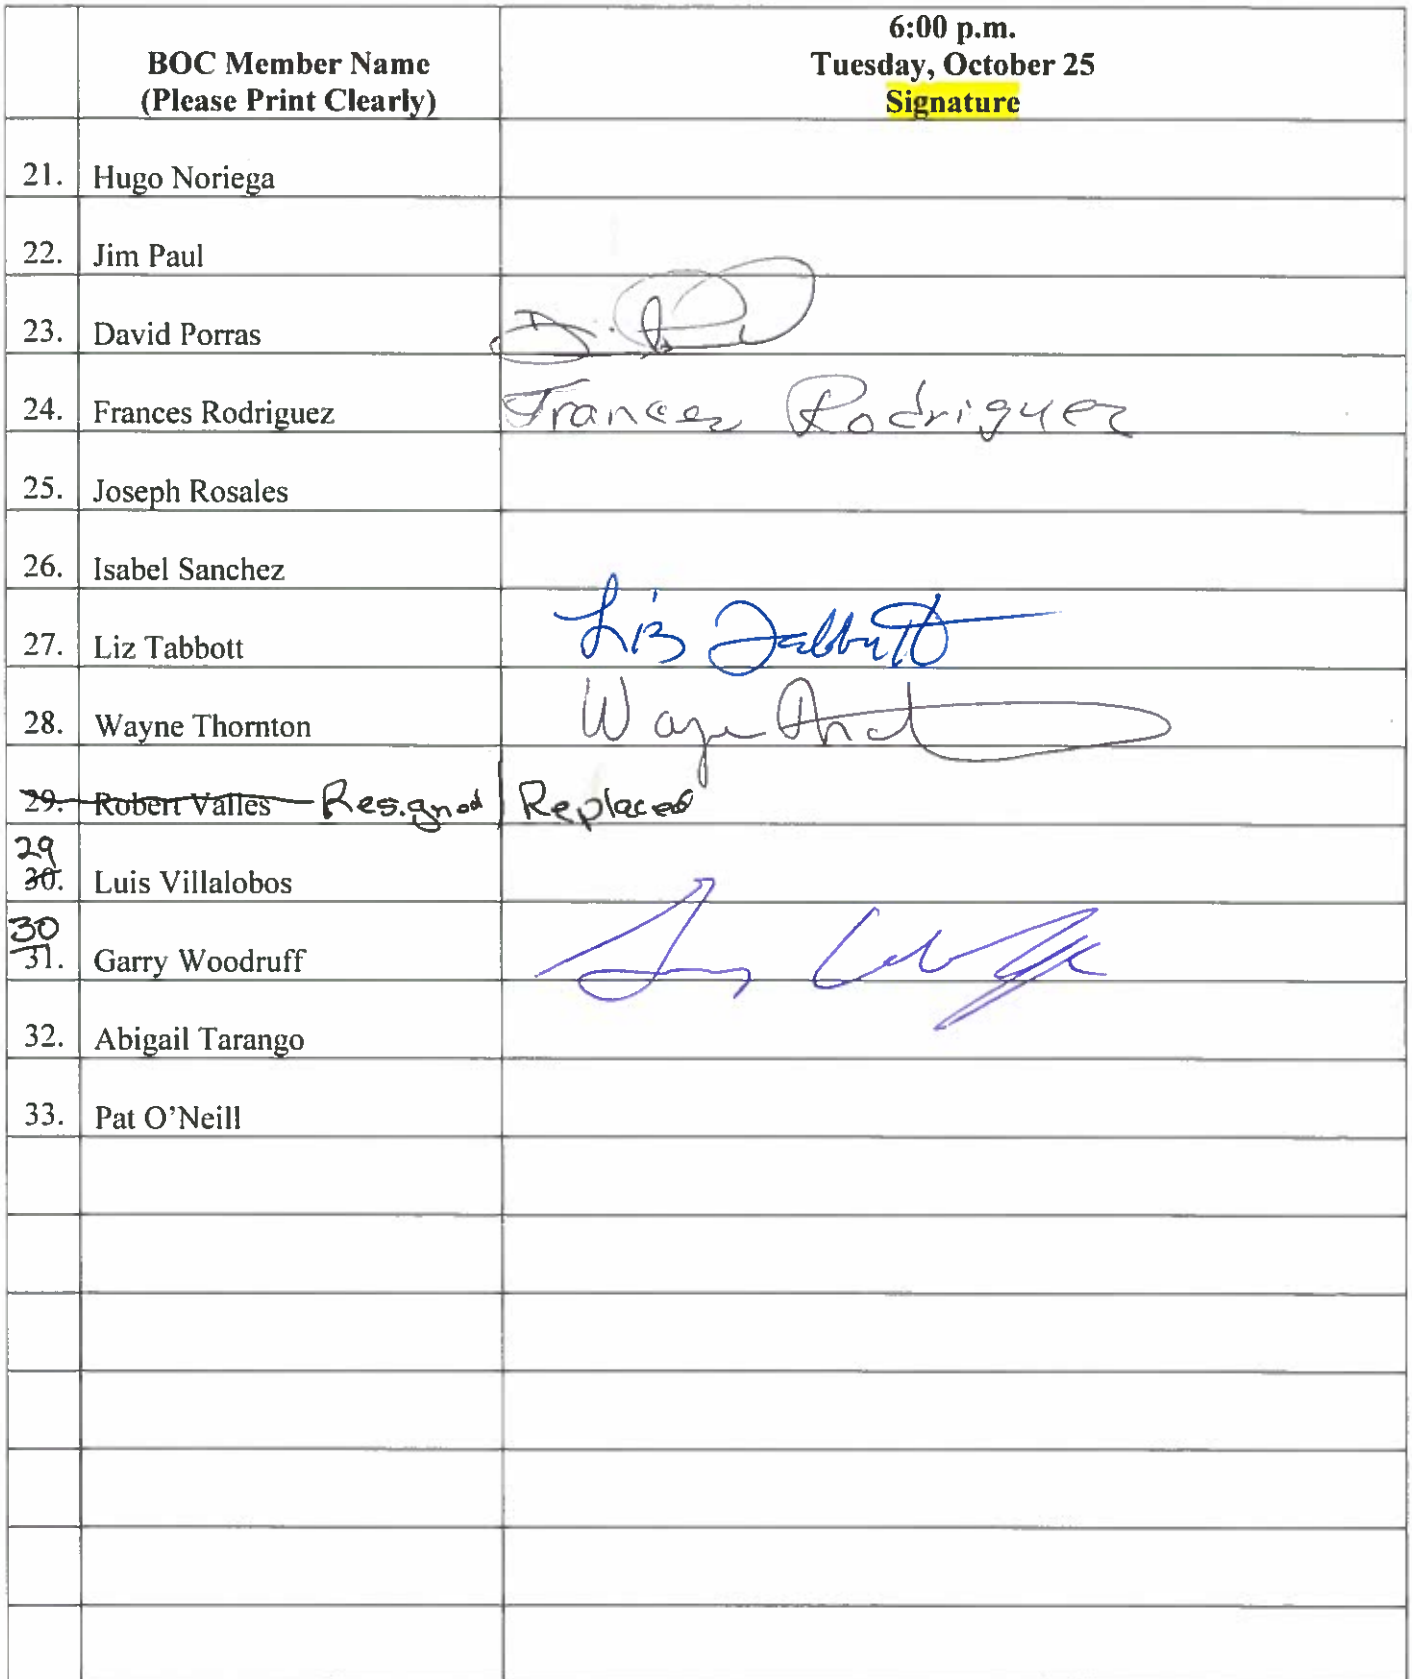 BOC Member Name
(Please Print Clearly)
6:00 p.m.
Tuesday, October 25
Signature
21. Hugo Noriega
22. Jim Paul
23. David Porras D.
24. Frances Rodriguez Frances Rodriguez
25. Joseph Rosales
26. Isabel Sanchez
27. Liz Tabbott Liz Tabbott
28. Wayne Thornton Wayne
29. Robert Valles Resigned Replaced
29
30. Luis Villalobos
30
31. Garry Woodruff
32. Abigail Tarango
33. Pat O'Neill